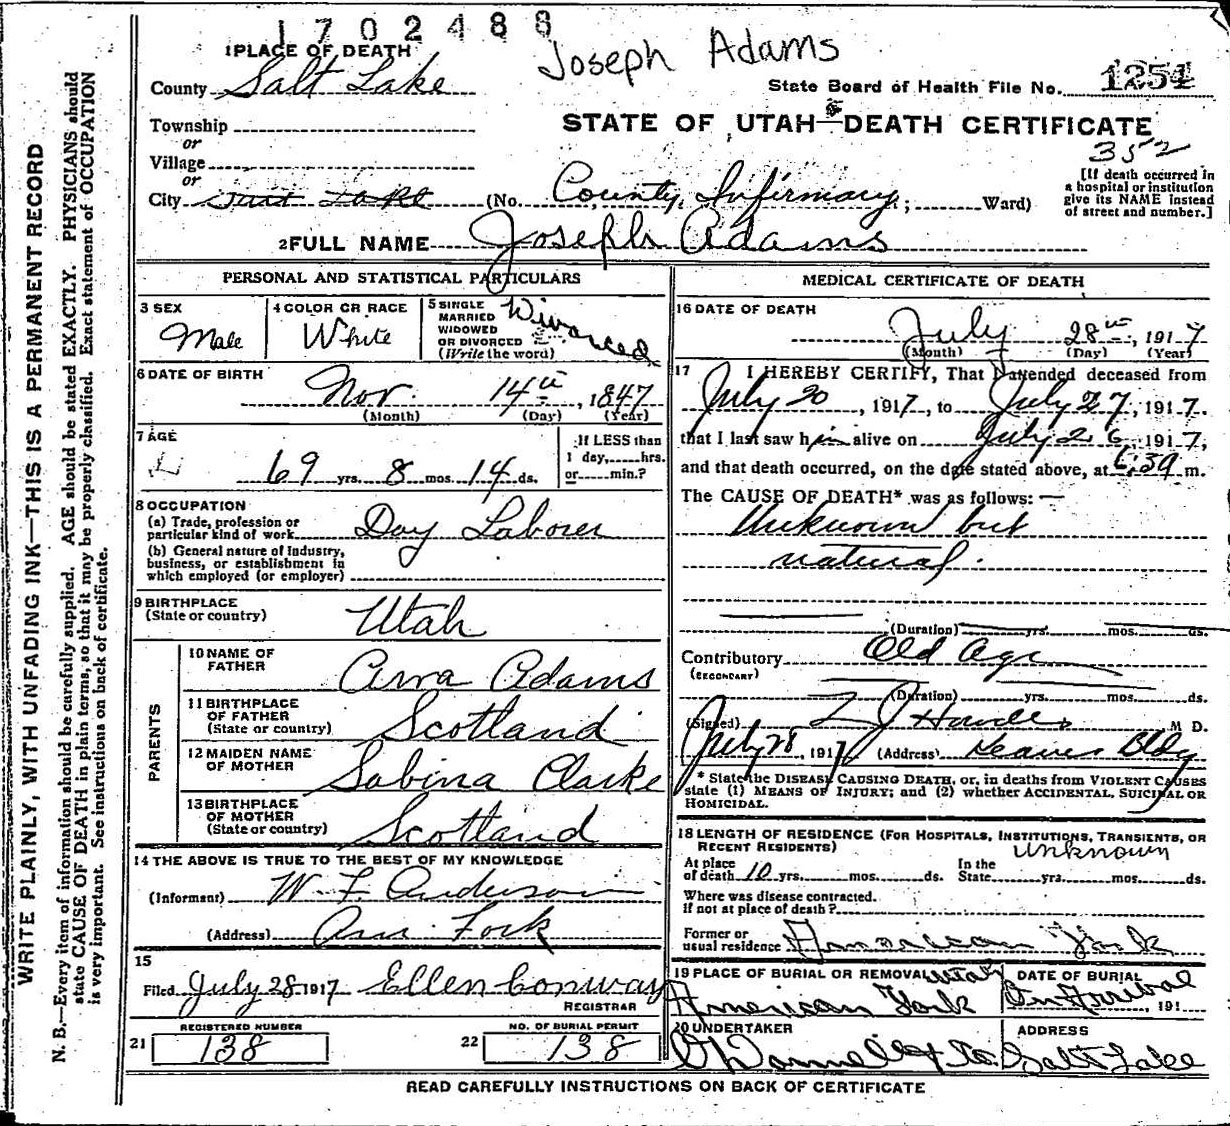 1702488
Joseph Adams
1 PLACE OF DEATH
County Salt Lake
State Board of Health File No. 1254
Township
or
STATE OF UTAH—DEATH CERTIFICATE
352
Village
or
City Salt Lake (No. County Infirmary; Ward)
[If death occurred in
a hospital or institution
give its NAME instead
of street and number.]
2 FULL NAME Joseph Adams
PERSONAL AND STATISTICAL PARTICULARS
3 SEX
Male
4 COLOR OR RACE
White
5 SINGLE
MARRIED
WIDOWED
OR DIVORCED
(Write the word)
Divorced
6 DATE OF BIRTH
Nov. 14th, 1847
(Month) (Day) (Year)
7 AGE
69 yrs. 8 mos. 14 ds.
If LESS than
1 day, hrs.
or min.?
8 OCCUPATION
(a) Trade, profession or
particular kind of work Day Laborer
(b) General nature of industry,
business, or establishment in
which employed (or employer)
9 BIRTHPLACE
(State or country)
Utah
PARENTS
10 NAME OF
FATHER
Arva Adams
11 BIRTHPLACE
OF FATHER
(State or country)
Scotland
12 MAIDEN NAME
OF MOTHER
Sabina Clarke
13 BIRTHPLACE
OF MOTHER
(State or country)
Scotland
14 THE ABOVE IS TRUE TO THE BEST OF MY KNOWLEDGE
(Informant) W. F. Anderson
(Address) Am. Fork
15
Filed July 28 1917 Ellen Conway
REGISTRAR
REGISTERED NUMBER
21 138
NO. OF BURIAL PERMIT
22 138
MEDICAL CERTIFICATE OF DEATH
16 DATE OF DEATH
July 28th, 1917
(Month) (Day) (Year)
17 I HEREBY CERTIFY, That I attended deceased from
July 20, 1917, to July 27, 1917.
that I last saw him alive on July 26, 1917,
and that death occurred, on the date stated above, at 6:39 m.
The CAUSE OF DEATH* was as follows:
Unknown but
natural.
(Duration) yrs. mos. ds.
Contributory Old Age
(SECONDARY)
(Duration) yrs. mos. ds.
(Signed) M D.
July 28, 1917 (Address) Bldg
* State the DISEASE CAUSING DEATH, or, in deaths from VIOLENT CAUSES
state (1) MEANS OF INJURY; and (2) whether ACCIDENTAL, SUICIDAL OR
HOMICIDAL.
18 LENGTH OF RESIDENCE (FOR HOSPITALS, INSTITUTIONS, TRANSIENTS, OR
RECENT RESIDENTS)
unknown
At place
of death 10 yrs. mos. ds.
In the
State yrs. mos. ds.
Where was disease contracted.
if not at place of death?
Former or
usual residence American Fork
19 PLACE OF BURIAL OR REMOVAL
American Fork Utah
DATE OF BURIAL
On Arrival, 191
20 UNDERTAKER
O'Donnell & Co.
ADDRESS
Salt Lake
READ CAREFULLY INSTRUCTIONS ON BACK OF CERTIFICATE
WRITE PLAINLY, WITH UNFADING INK—THIS IS A PERMANENT RECORD
N. B.—Every item of information should be carefully supplied. AGE should be stated EXACTLY. PHYSICIANS should
state CAUSE OF DEATH in plain terms, so that it may be properly classified. Exact statement of OCCUPATION
is very important. See instructions on back of certificate.